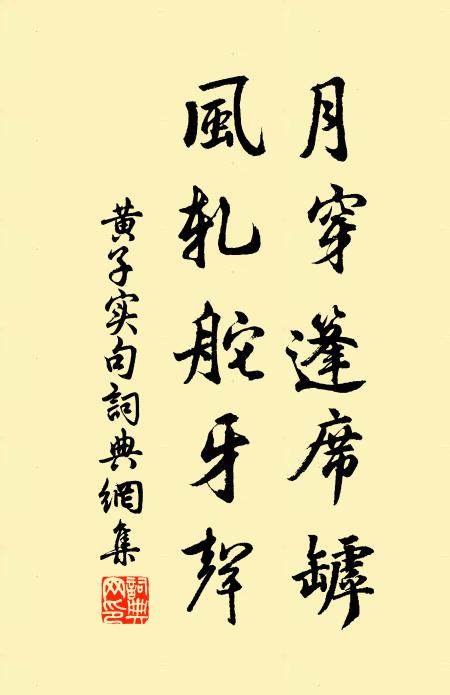 月穿篷席罅
風軋舵牙聲
黄子实句詞典網集
詞典网印